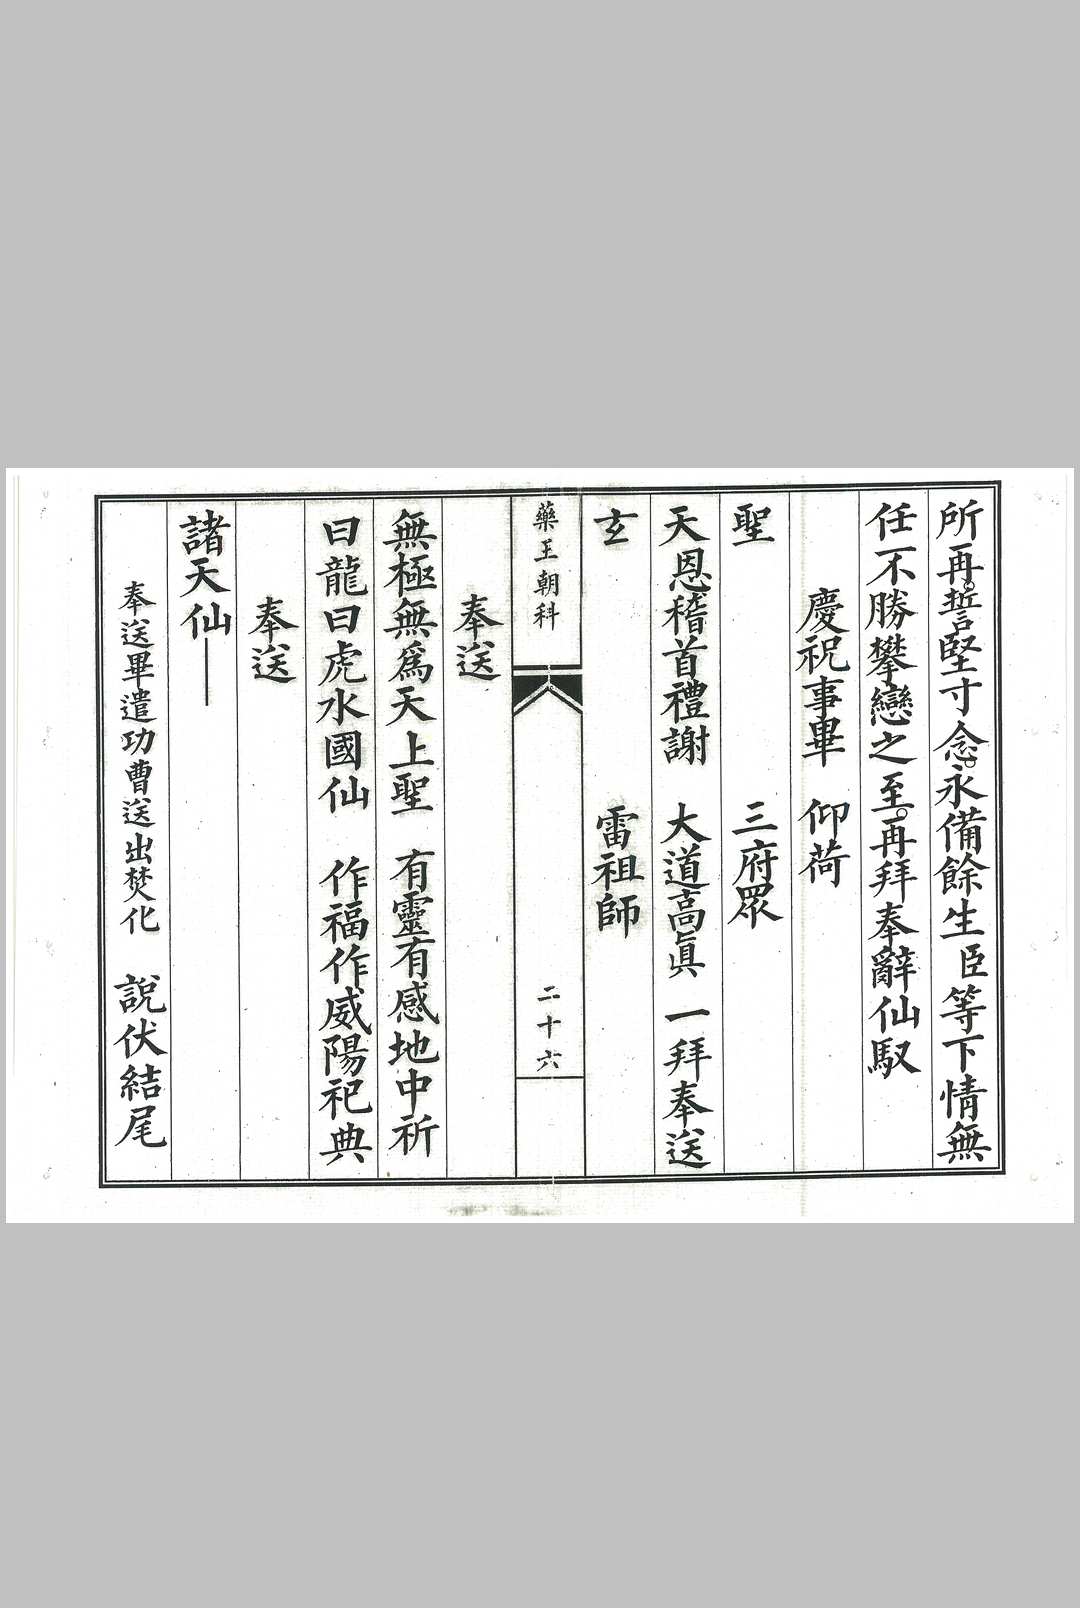 所再。誓堅寸念。永備餘生臣等下情無
任不勝攀戀之至。再拜奉辭仙馭
慶祝事畢　仰荷
聖　三府眾
天恩稽首禮謝　大道高眞　一拜奉送
玄　雷祖師
藥王朝科　二十六
奉送
無極無爲天上聖　有靈有感地中祈
曰龍曰虎水國仙　作福作威陽祀典
奉送
諸天仙——
奉送畢遣功曹送出焚化　説伏結尾